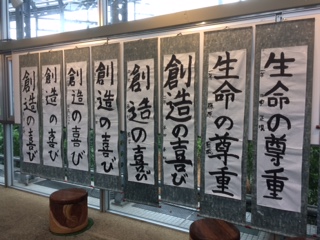 創造の喜び
創造の喜び
創造の喜び
創造の喜び
創造の喜び
創造の喜び
生命の尊重
生命の尊重